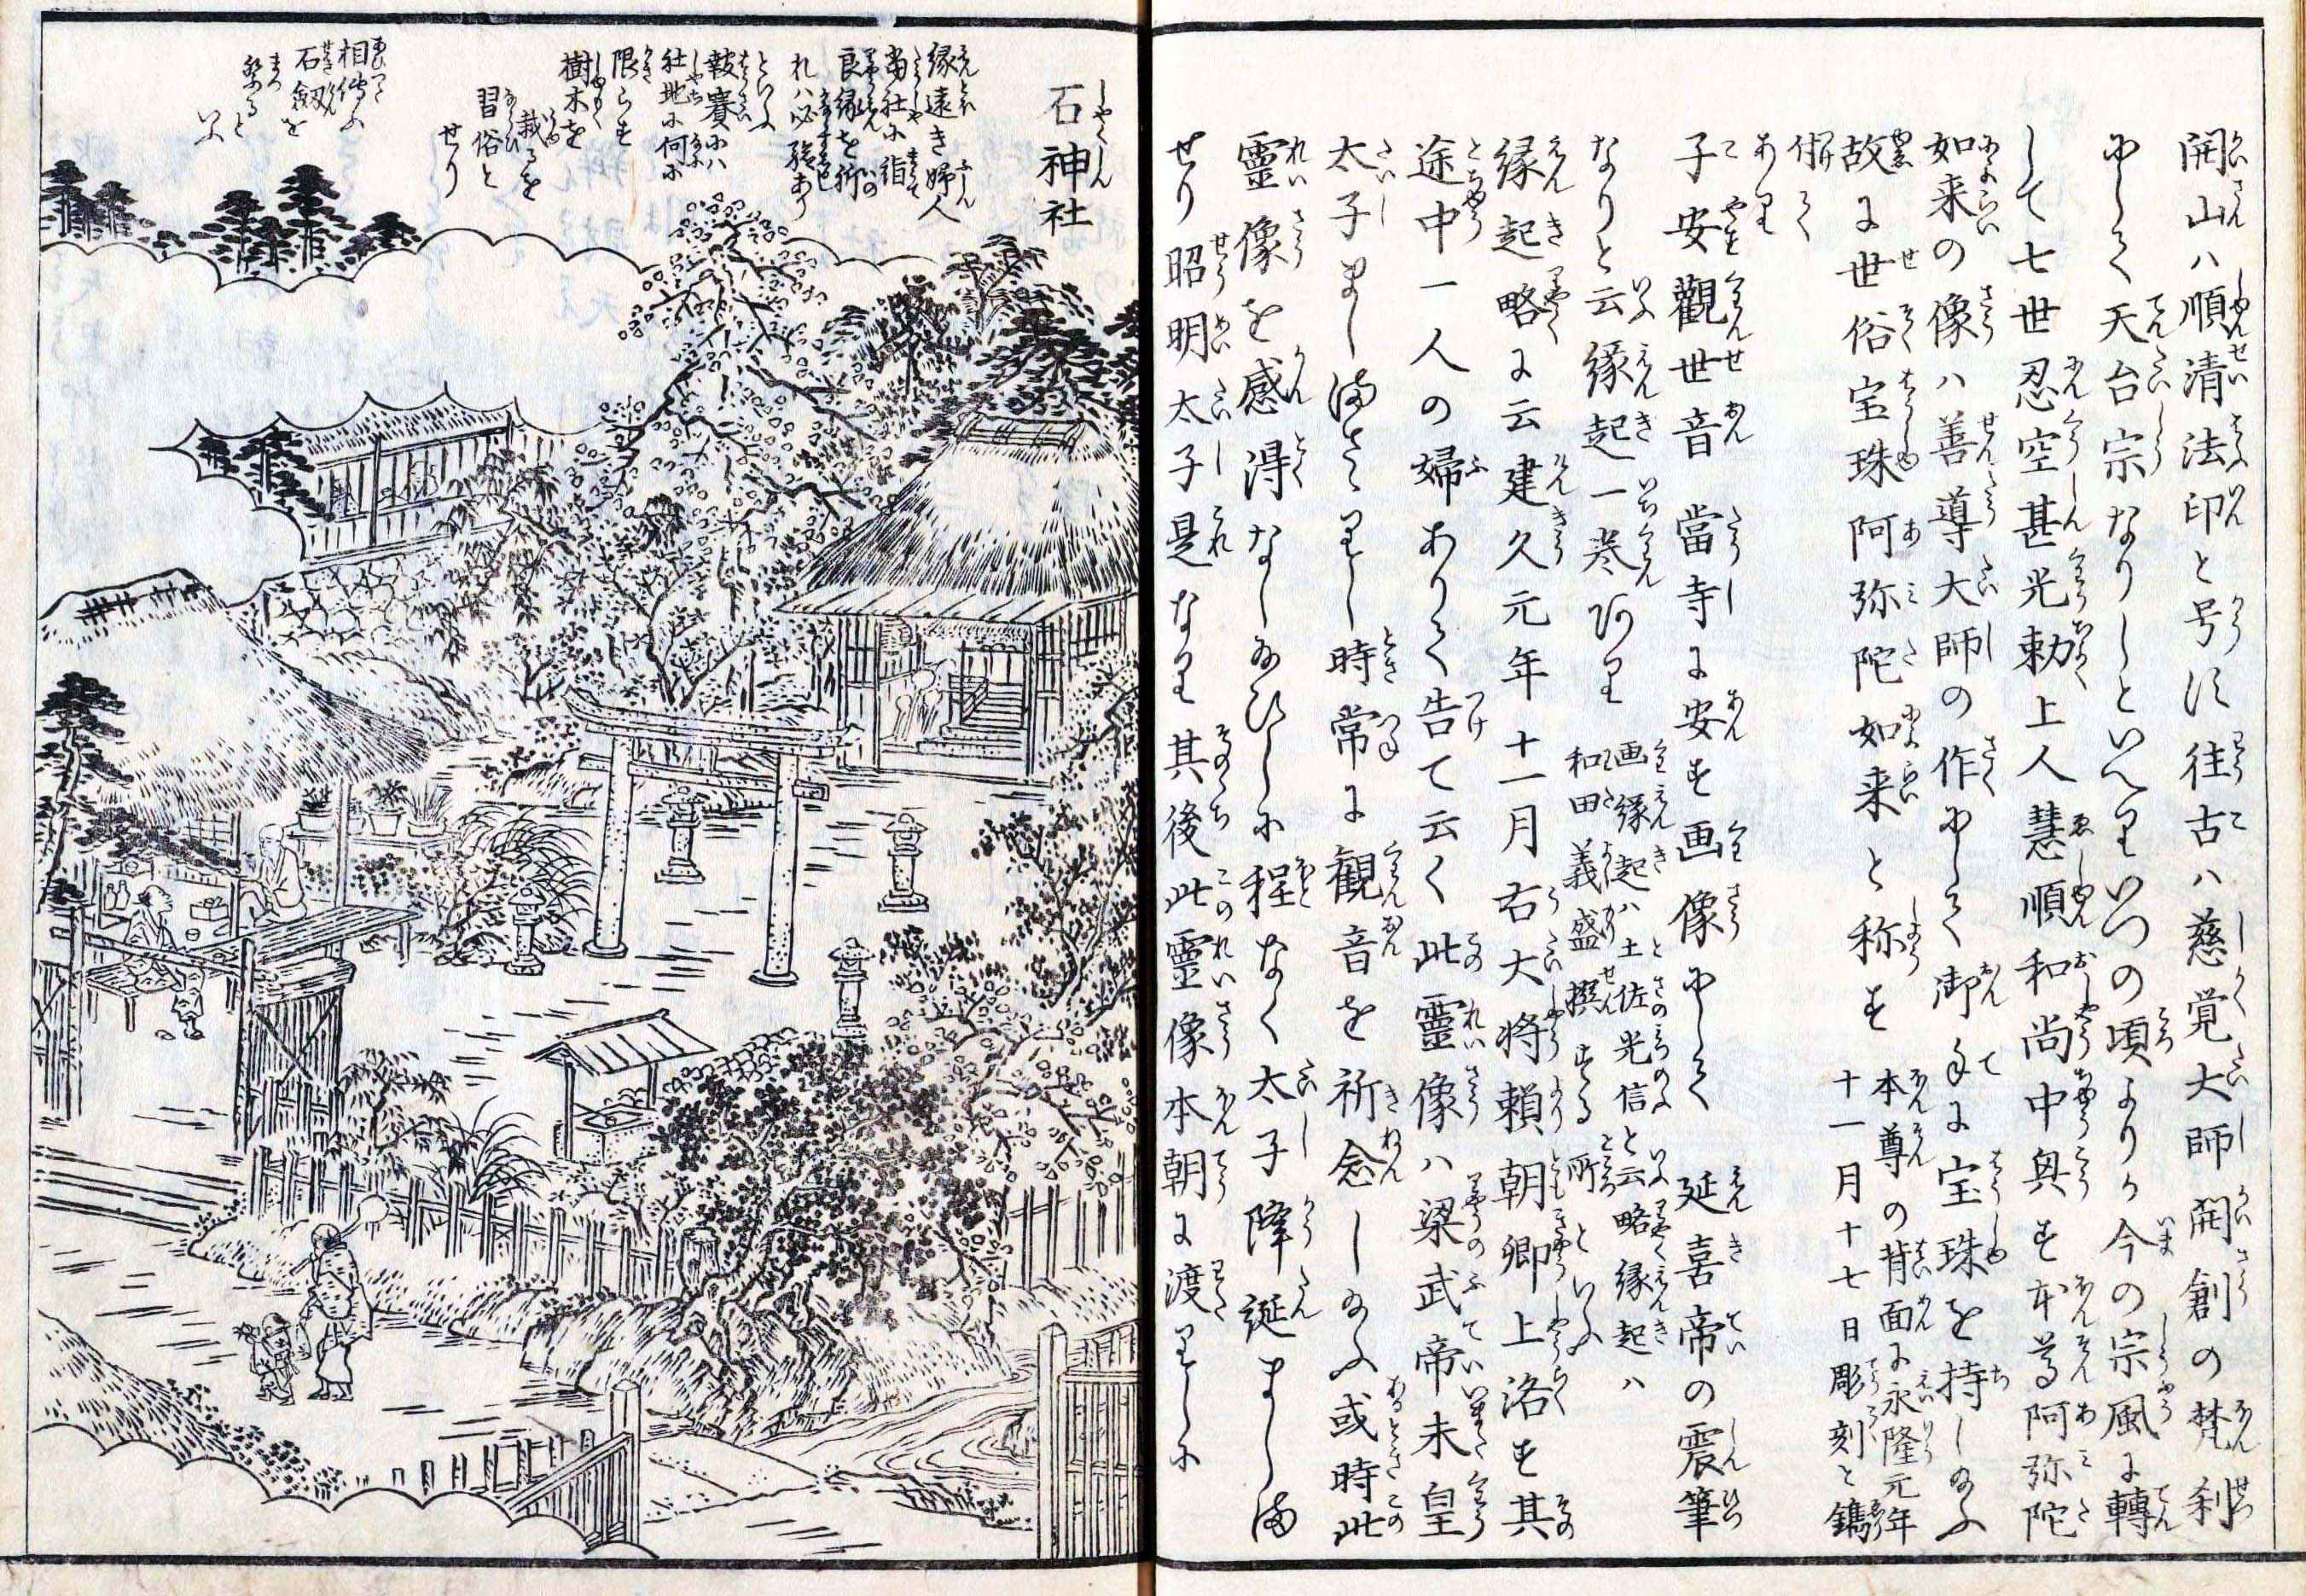 開山ハ順清法印と号す往古ハ慈覚大師開創の梵刹
にして天台宗なりしといへりいつの頃よりか今の宗風に轉
して七世忍空甚光勅上人慧順和尚中興す本尊阿弥陀
如来の像ハ善導大師の作にして御手に宝珠を持し給ふ
故に世俗宝珠阿弥陀如来と称す
本尊の背面に永隆元年
十一月十七日彫刻と鐫
付て
あり
子安觀世音 當寺に安す画像にして 延喜帝の震筆
なりと云縁起一巻あり
画縁起ハ土佐光信と云略縁起ハ
和田義盛撰する所といふ
縁起略に云建久元年十一月右大将頼朝卿上洛す其
途中一人の婦ありて告て云く此靈像ハ梁武帝未皇
太子ましまさゝりし時常に観音を祈念し給ふ或時此
靈像を感得なし給ひしに程なく太子降誕ましま
せり昭明太子是なり其後此靈像本朝に渡りしに
石神社
縁遠き婦人
当社に詣て
良縁を祈
れハ必験あり
といふ
報賽にハ
社地に何に
限らす
樹木を
栽るを
習俗と
せり
相傳ふ
石劔を
祭ると
いふ